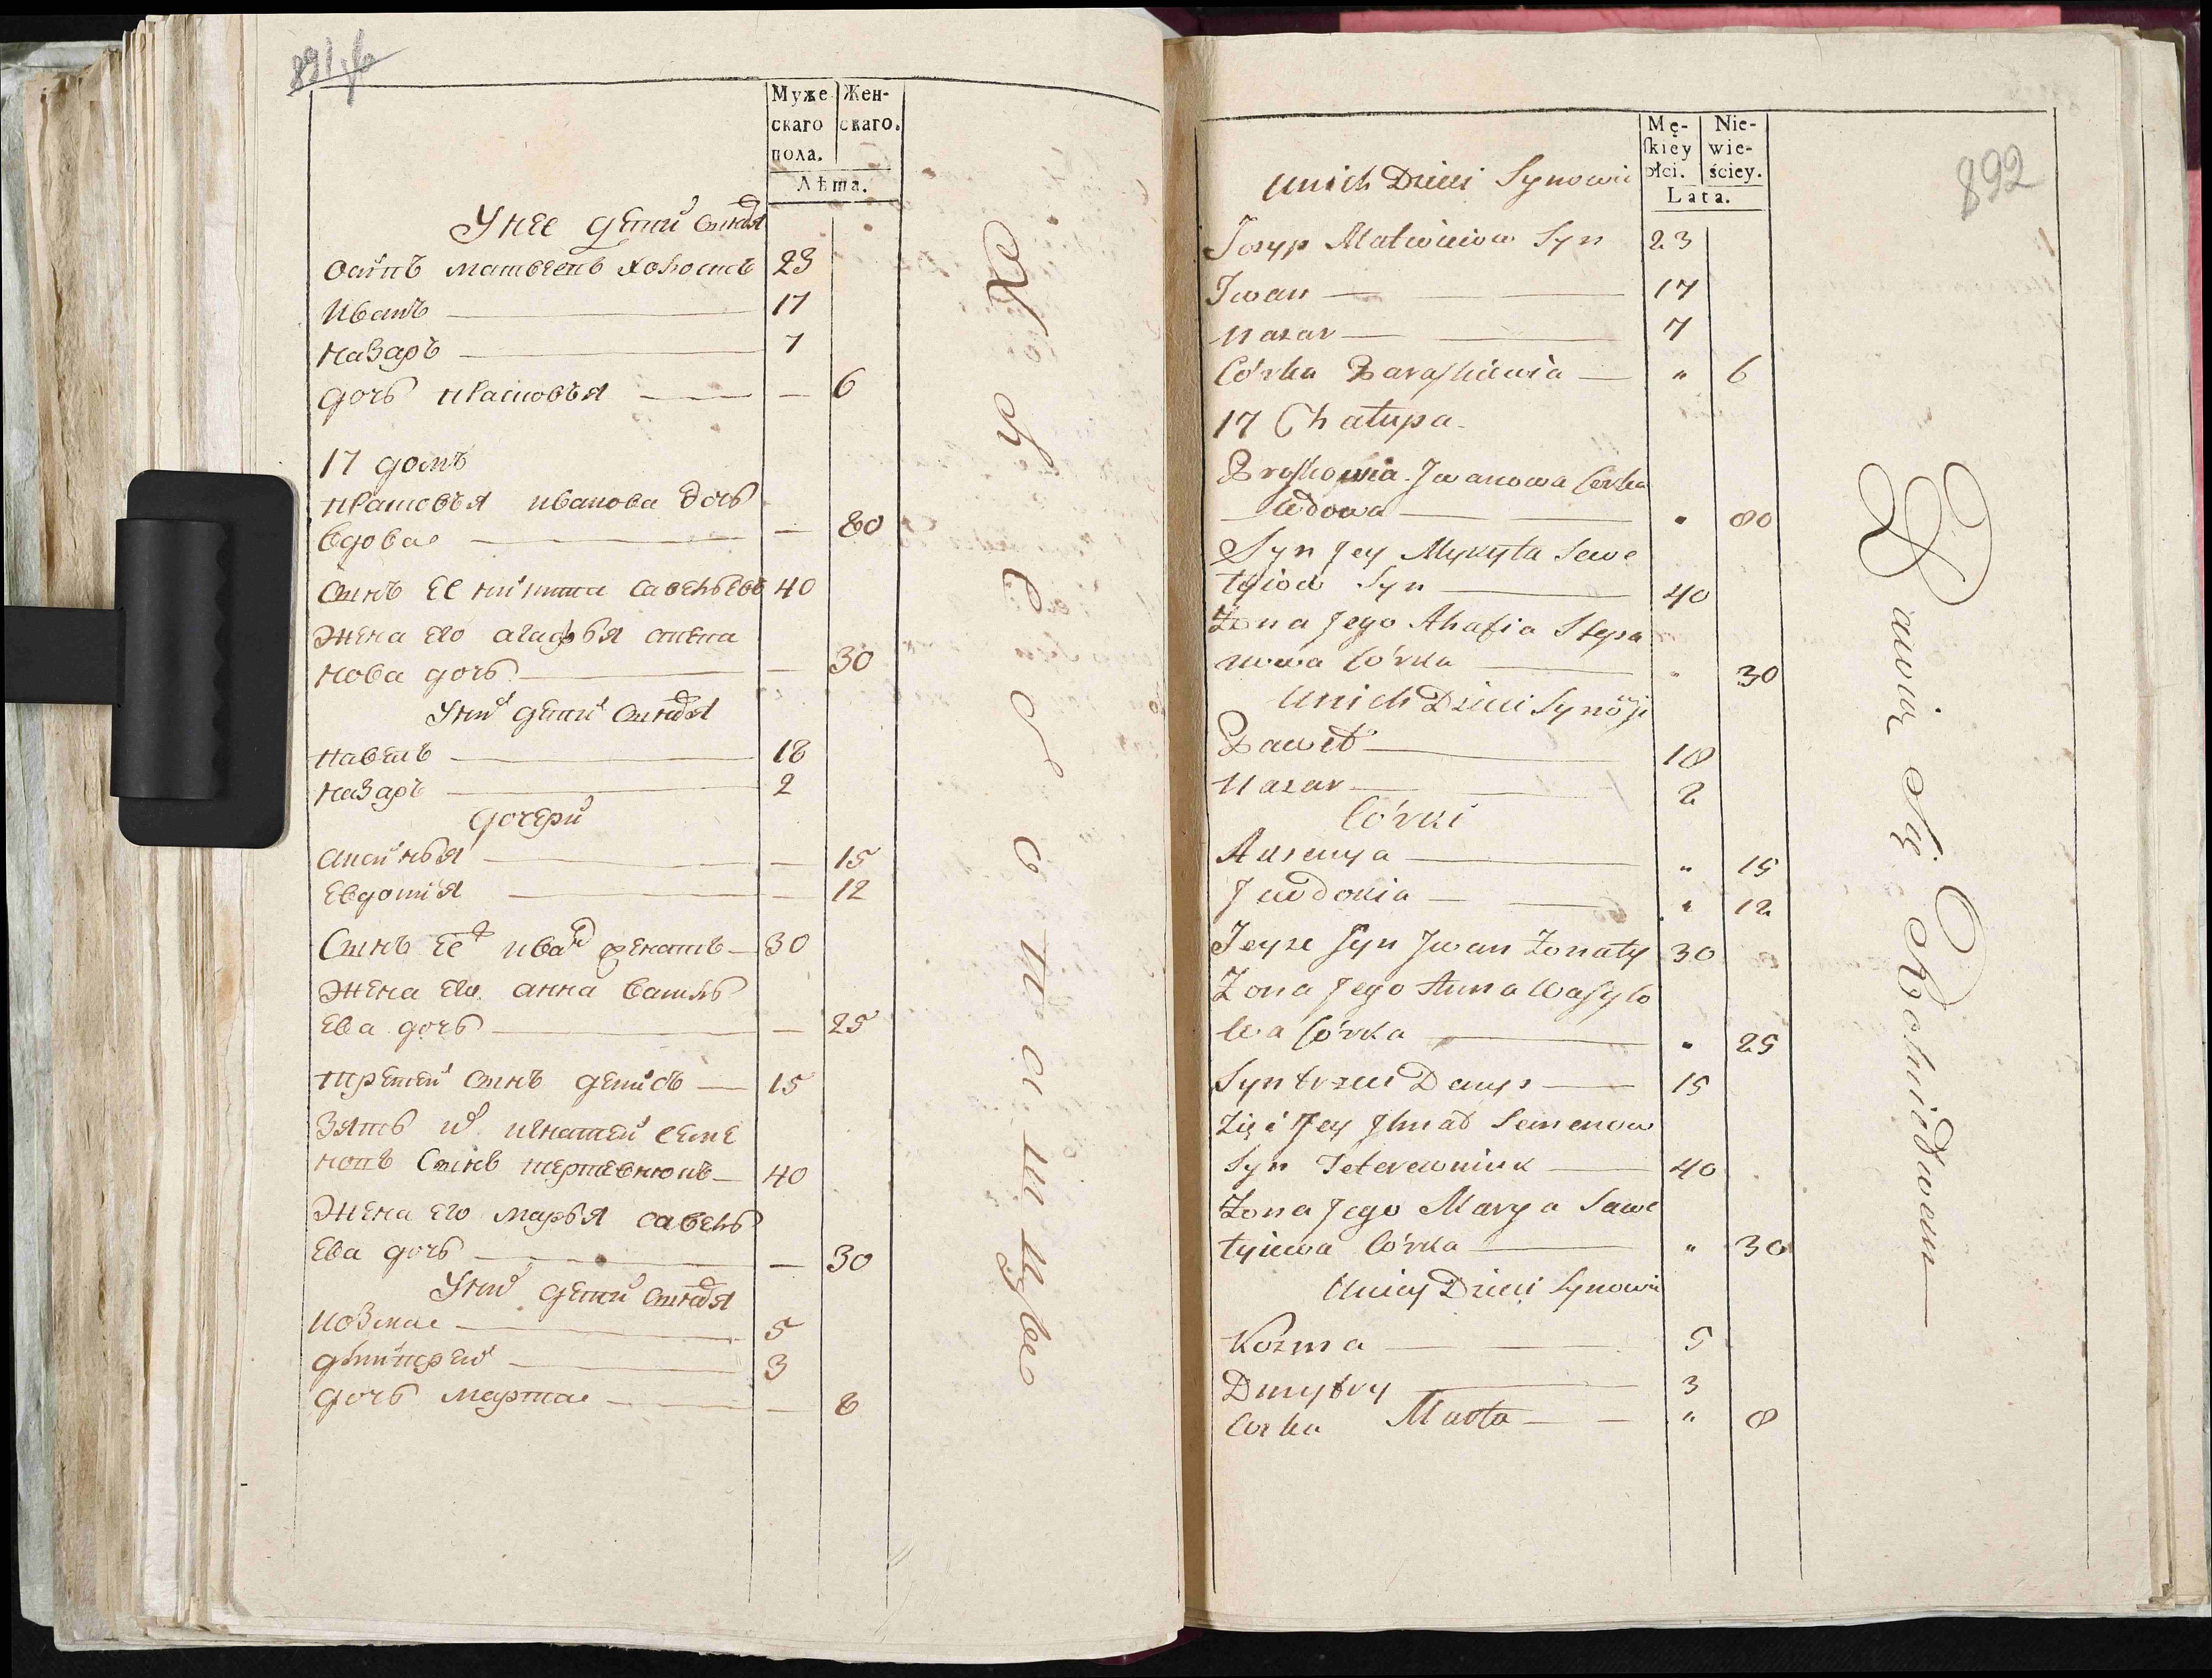 891 об
Муже
скаго
пола.
Жен-
скаго.
Лѣта.
У нее дети сыновя
осипъ матвеевъ холостъ 23
Иванъ — 17
назаръ — 7
дочь прасковья — — 6
17 домъ
прасковья иванова дочь
вдова — — 80
сынъ ее никита савельевъ 40
жена его агафья степа
нова дочь — — 30
У них дети сыновя
павелъ — 18
назаръ — 2
дочери
аксинья — — 15
Евдокия — — 12
Сынъ ее иван женатъ — 30
жена его анна василь
ева дочь — — 25
третей сынъ денисъ — 15
зять игнатей семе
новъ сынъ — 40
жена его марья савель
ева дочь — — 30
У них дети сыновя
козма — 5
дмитрей — 3
дочь марта — — 8
892
Mę-
skiey
płci.
Nie-
wie-
ściey.
Lata.
Unich Dzieci Synowie
Josyp Matwieiow Syn 23
Jwan — — 17
Nazar — — 7
Córka Paraskiewia — " 6
17 Chałupa
Praskowia Jwanowa Corka
Wdowa — — " 80
Syn Jey Mykyta Sawe
łyiow Syn — 40
Żona Jego Ahafia Stepa
nowa Córka — " 30
Unich Dzieci Synowie
Paweł — 18
Nazar — — 2
Córki
Aksenya — " 15
Jewdokia — — " 12
Jeysze Syn Jwan Żonaty 30
Żona Jego Anna Wasylo
wa Córka — " 25
Syn trzeci Denys — 15
Zięć Jey Jhnat Semenow
Syn Teterewniuk — 40
Żona Jego Marya Sawe
łyiewa Córka — " 30
Unich Dzieci Synowie
Kozma — — 5
Dmytry — 3
Corka Marta — — " 8
Bawią Się Rolnictwem —